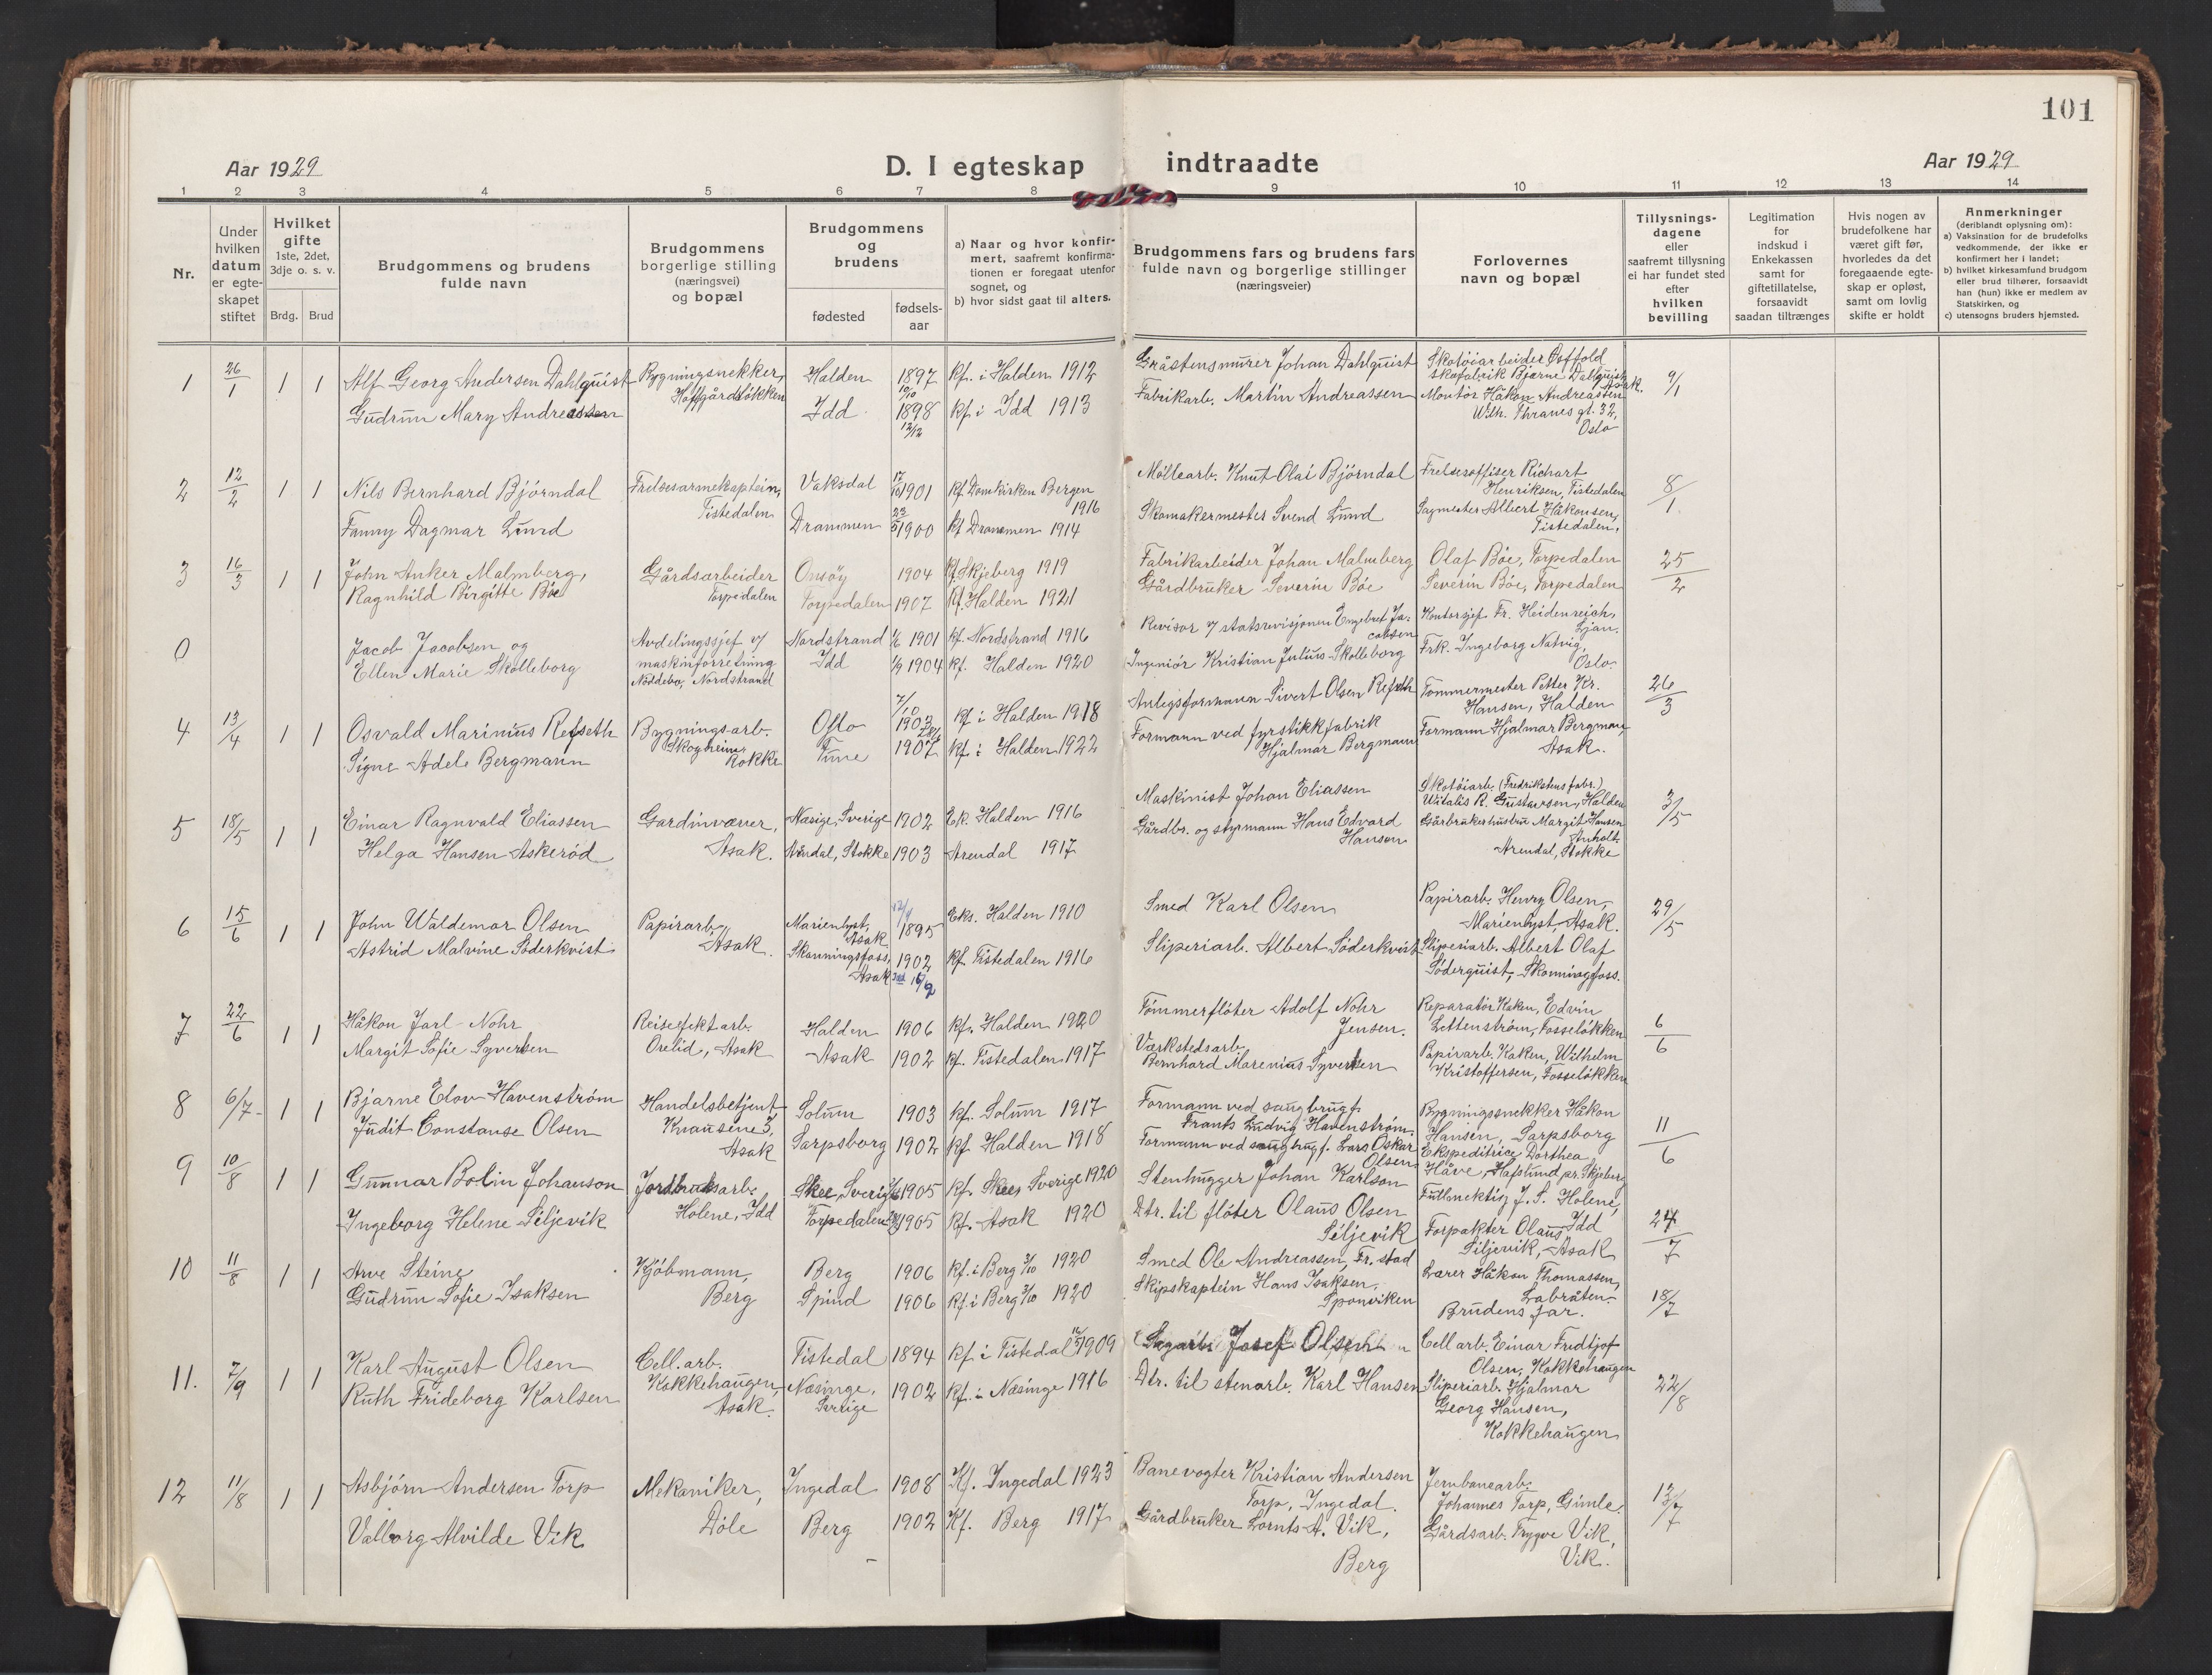 101
Aar 1929
D. I egteskap indtraadte
Aar 1929
1 2 3 4 5 6 7 8 9 10 11 12 13 14
Nr.
Under hvilken datum er egteskapet stiftet
Hvilket gifte 1ste, 2det, 3dje o. s. v.
Brdg. Brud
Brudgommens og brudens fulde navn
Brudgommens borgerlige stilling (næringsvei) og bopæl
Brudgommens og brudens
fødested
fødsels-aar
a) Naar og hvor konfirmert, saafremt konfirmationen er foregaat utenfor sognet, og
b) hvor sidst gaat til alters.
Brudgommens fars og brudens fars fulde navn og borgerlige stillinger (næringsveier)
Forlovernes navn og bopæl
Tillysningsdagene eller saafremt tillysning ei har fundet sted efter hvilken bevilling
Legitimation for indskud i Enkekassen samt for giftetillatelse, forsaavidt saadan tiltrænges
Hvis nogen av brudefolkene har været gift før, hvorledes da det foregaaende egteskap er opløst, samt om lovlig skifte er holdt
Anmerkninger (deriblandt oplysning om):
a) Vaksination for de brudefolks vedkommende, der ikke er konfirmert her i landet;
b) hvilket kirkesamfund brudgom eller brud tilhører, forsaavidt han (hun) ikke er medlem av Statskirken, og
c) utensogns bruders hjemsted.
1 26/1 1 1 Alf Georg Andersen Dahlquist Bygningsnekker, Hoffgårdsløkken Halden 1897 10/10 kf. i Halden 1912 Gråstensmurer Johan Dahlquist Skotöiarbeider Östfold skofabrik Bjarne Dahlquist, Asak. 9/1
Gudrun Mary Andreassen Idd 1898 12/12 kf i Idd 1913 Fabrikarb. Martin Andreassen Montör Håkon Andreassen Wilh. Thranes gt. 32, Oslo
2 12/2 1 1 Nils Bernhard Bjørndal Frelsesarmekaptein, Tistedalen Vaksdal 1901 kf. Domkirken Bergen 1916 Möllearb. Knut Olai Bjørndal Frelsesoffiser Richart Henriksen, Tistedalen 8/1
Fanny Dagmar Lund Drammen 1900 kf Drammen 1914 Skomakermester Svend Lund Sagmester Albert Håkonsen, Tistedalen.
3 16/3 1 1 John Anker Malmberg, Gårdsarbeider Torpedalen Onsöy 1904 kf Skjeberg 1919 Fabrikarbeider Johan Malmberg Olaf Böe, Torpedalen 25/2
Ragnhild Birgitte Böe Torpedalen 1907 kf. Halden 1921 Gårdbruker Severin Böe Severin Böe, Torpedalen
0 Jacob Jacobsen og Avdelingssjef v/ maskinforretning Nöddebo, Nordstrand Nordstrand 1901 kf. Nordstrand 1916 Revisor v/ statsrevisjonen Engebret Jacobsen Kontorsjef Fr. Heidenreich, Ljan.
Ellen Marie Skolleborg Idd 1904 kf. Halden 1920 Ingeniör Kristian Julius Skolleborg Frk. Ingeborg Natvig, Oslo.
4 13/4 1 1 Osvald Marinius Refseth Bygningsarb. Skogheim, Rokke Oslo 7/10 1902 kf i Halden 1918 Anlegsformann Sivert Olsen Refseth Tömmermester Petter Kr. Hansen, Halden 26/3
Signe Adele Bergmann Tune 1907 kf. i Halden 1922 Formann ved fyrstikkfabrik Hjalmar Bergmann Formann Hjalmar Bergmann, Asak.
5 18/5 1 1 Einar Ragnvald Eliassen Gardinvæver, Asak. Næsige, Sverige 1902 Ek. Halden 1916 Maskinist Johan Eliassen Skotöiarb. (Fredrikstens fabr.) Witalis R. Gustavsen, Halden 3/5
Helga Hansen Askeröd Arendal, Stokke 1903 Arendal 1917 Gårdbr. og styrmann Hans Edvard Hansen Gårbrukerhustru Margit Hansen Anholt. Arendal, Stokke
6 15/6 1 1 John Waldemar Olsen Papirarb., Asak. Marienlyst, Asak 1895 Eks. Halden 1910 Smed Karl Olsen Papirarb. Henry Olsen, Marienlyst Asak. 29/5
Astrid Malvine Söderkvist Skonningsfoss, Asak 1902 kf. Tistedalen 1916 Sliperiarb. Albert Söderkvist Sliperiarb. Albert Olaf Söderquist, Skonningfoss.
7 22/6 1 1 Håkon Jarl Nohr Reiseefektarb. Orelid, Asak Halden 1906 kf. Halden 1920 Tömmerflöter Adolf Nohr Jensen. Reparatör Kaken, Edvin Zettenström, Fosselökken 6/6
Margit Sofie Syvertsen Asak 1902 kf. Tistedalen 1917 Værkstedsarb. Bernhard Marenius Syvertsen Papirarb. Kaken, Wilhelm Kristoffersen, Fosselökken
8 6/7 1 1 Bjarne Elov Havenström Handelsbetjent Knausene 3, Asak Solum 1903 kf. Solum 1917 Formann ved saugbrugf. Frants Ludvig Havenström. Bygningssnekker Håkon Hansen, Sarpsborg 11/6
Judit Constanse Olsen Sarpsborg 1902 kf Halden 1918 Formann ved saugbrugf. Lars Oskar Olsen Ekspeditrice Dorthea Håve, Hafslund pr. Skjeberg
9 10/8 1 1 Gunnar Bolin Johanson Jordbruksarb. Holene, Idd Skee, Sverige 1905 kf. Skee, Sverige 1920 Stenhugger Johan Karlson Fullmektig J. S. Holene, Idd 24/7
Ingeborg Helene Siljevik Torpedalen 1905 kf. Asak 1920 Dtr. til flöter Olaus Olsen Siljevik Forpakter Olaus Siljevik, Asak
10 11/8 1 1 Arve Steine Kjöbmann, Berg Berg 1906 kf. i Berg 3/10 1920 Smed Ole Andreassen, Fr. stad Lærer Håkon Thomassen, Labråten. 18/7
Gudrun Sofie Isaksen Spind 1906 kf. i Berg 3/10 1920 Skipskaptein Hans Isaksen, Sponviken Brudens far.
11. 7/9 1 1 Karl August Olsen Cell. arb. Kokkehaugen, Asak. Tistedal 1894 kf i Tistedal 1909 Sagarb. Josef Olsen Cell arb. Einar Fridtjof Olsen, Kokkehaugen 22/8
Ruth Frideborg Karlsen Næsinge, Sverige 1902 kf. i Næsinge 1916 Dtr. til stenarb. Karl Hansen Sliperiarb. Hjalmar Georg Hansen, Kokkehaugen
12 11/8 1 1 Asbjörn Andersen Torp Mekaniker, Döle Ingedal 1908 Kf. Ingedal 1923 Banevogter Kristian Andersen Torp, Ingedal. Jernbanearb. Johannes Torp, Gimle. 13/7
Valborg Alvilde Vik Berg 1902 Kf. Berg 1917 Gårdbruker Lornts A. Vik, Berg Gårdsarb. Trygve Vik, Vik.